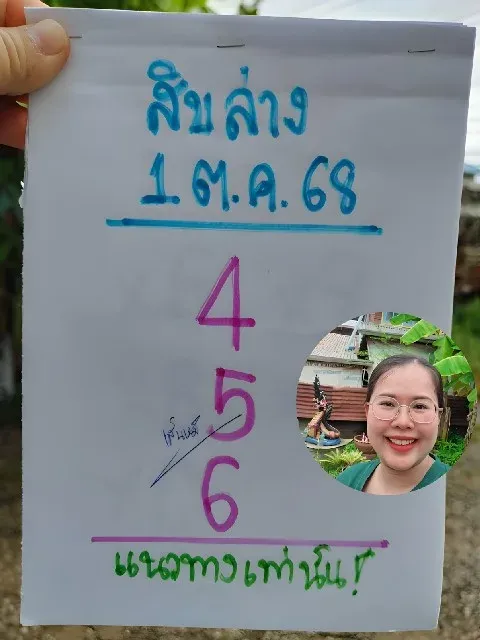 สิบล่าง
1.ต.ค.68
4
5
6
แนวทางเท่านั้น!